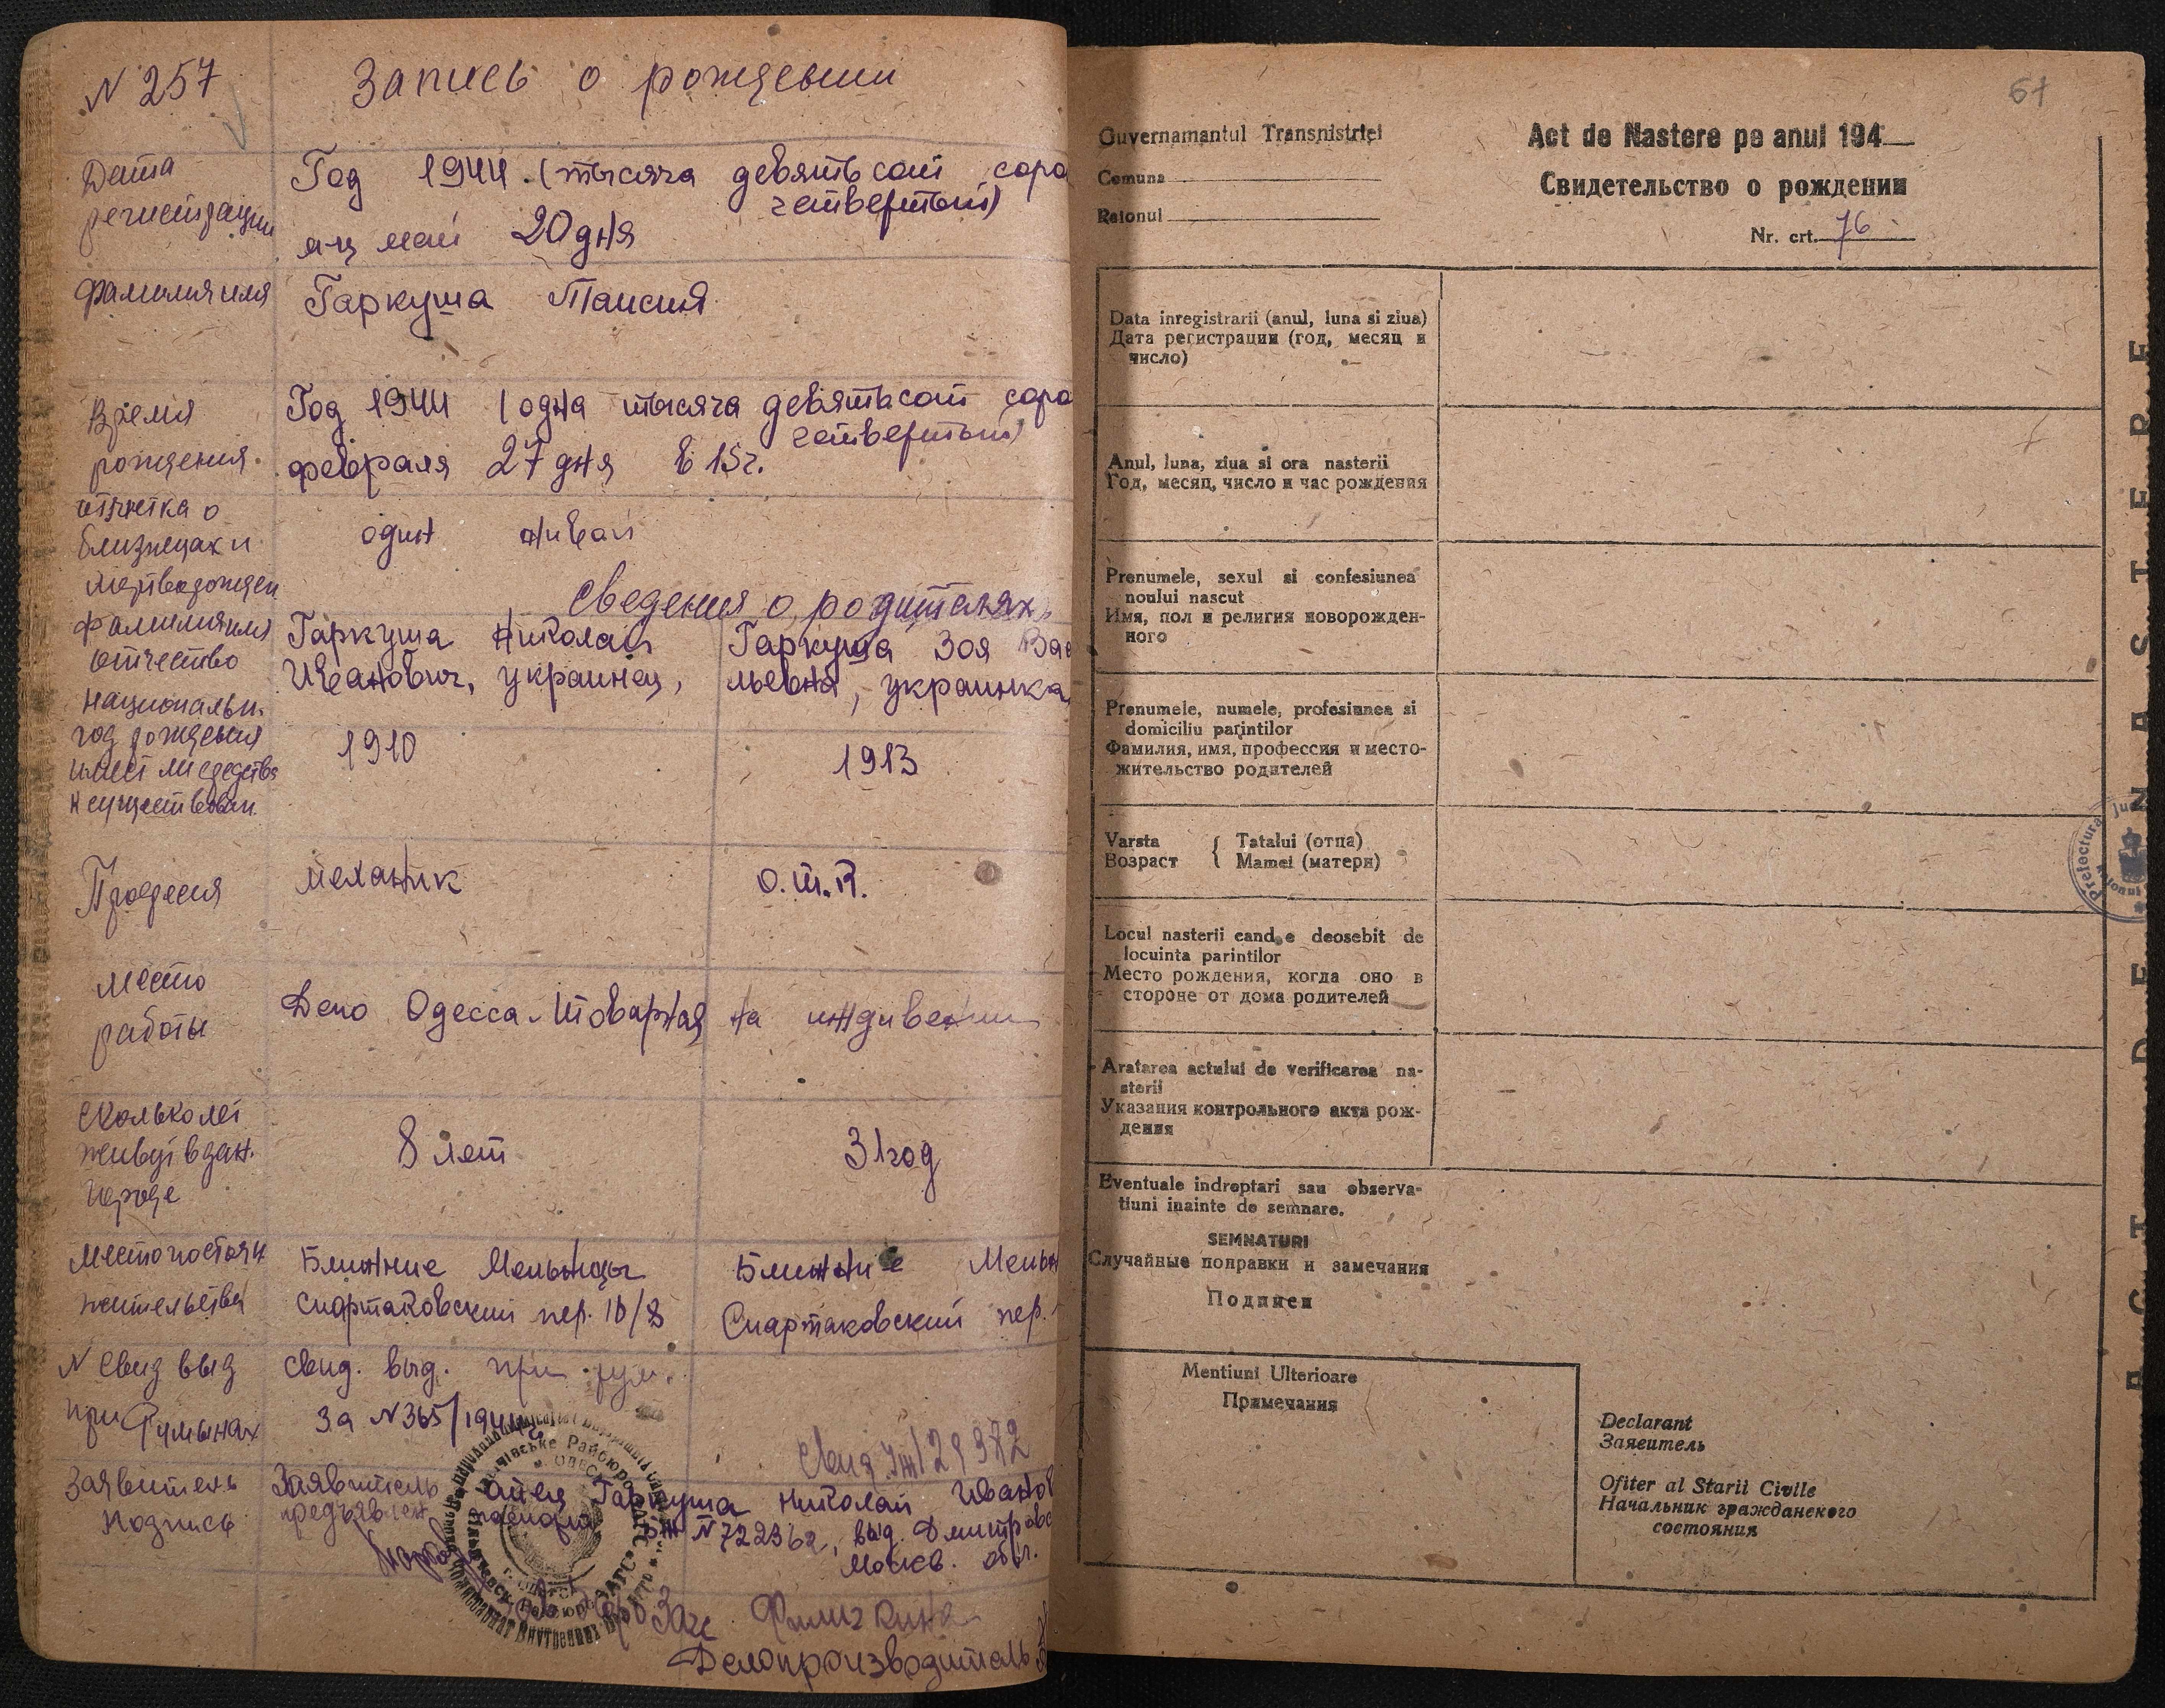 N 257
Запись о рождении
Дата
регистрации
Год 1944 (тысяча девятьсот соро
четвертый)
м-ц май 20 дня
Фамилия имя
Гаркуша Таисия
Время
рождения
Год 1944 (одна тысяча девятьсот соро
четвертый)
февраля 27 дня в 15 г.
отметка о
близнецах и
мертворожден
один живой
Сведения о родителях
Фамилия имя
отчество
национальн.
Гаркуша Николай
Иванович, украинец,
Гаркуша Зоя Васи
льевна, украинка
год рождения
имеет ли средства
к существован.
1910
1913
Професия
механик
О.М.П.
место
работы
Депо Одесса-Товарная
на иждивении
Сколько лет
живут в дан.
городе
8 лет
31 год
место постоян
жительства
Ближние Мельницы
Спартаковский пер. 10/8
Ближние Мельн
Спартаковский пер.
N свид выд
при Румынах
Свид. выд. при рум.
за N 365/1944
Свид 129382
Заявитель
подпись
Заявитель отец Гаркуша Николай Иванов
предъявлен паспорт N 722362, выд. Дмитровс
Москв. обл.
Делопроизводитель
67
Guvernamantul Transnistriei
Comuna
Raionul
Act de Nastere pe anul 194
Свидетельство о рождении
Nr. crt. 76
Data inregistrarii (anul, luna si ziua)
Дата регистрации (год, месяц и
число)
Anul, luna, ziua si ora nasterii
Год, месяц, число и час рождения
Prenumele, sexul si confesiunea
noului nascut
Имя, пол и религия новорожден-
ного
Prenumele, numele, profesiunea si
domiciliu parintilor
Фамилия, имя, профессия и место-
жительство родителей
Varsta { Tatalui (отца)
Возраст Mamei (матери)
Locul nasterii cand e deosebit de
locuinta parintilor
Место рождения, когда оно в
стороне от дома родителей
Aratarea actului de verificarea na-
sterii
Указания контрольного акта рож-
дения
Eventuale indreptari sau observa-
tiuni inainte de semnare.
SEMNATURI
Случайные поправки и замечания
Подписи
Mentiuni Ulterioare
Примечания
Declarant
Заявитель
Ofiter al Starii Civile
Начальник гражданского
состояния
ACT DE NASTERE
Prefectura Jud